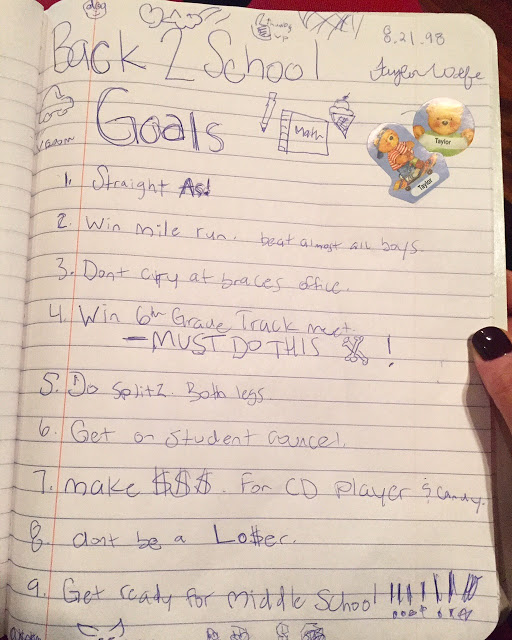 dog
thumbs up
8.21.98
Back 2 School
Taylor Wolfe
Goals
Math
VROOM
Taylor
Taylor
1. Straight As!
2. Win mile run. beat almost all boys.
3. Dont cry at braces office.
4. Win 6th Grade Track meet.
- MUST DO THIS !
5. Do Splitz. Both legs.
6. Get on student councel.
7. make $$$. For CD player & candy.
8. dont be a Lo$er.
9. Get ready for middle School !!!!!!!!!